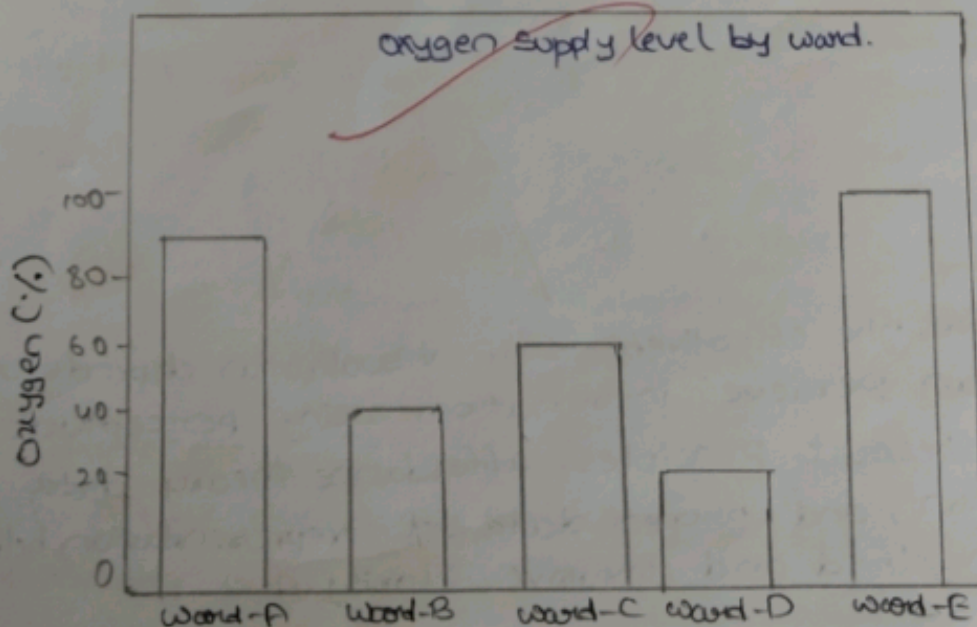 oxygen supply level by ward.
100
80
60
40
20
0
Oxygen (%)
Ward-A Ward-B Ward-C Ward-D Ward-E